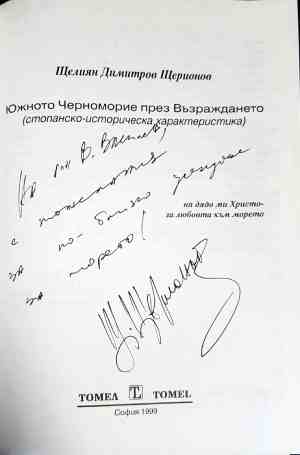 Щелиян Димитров Щерионов
Южното Черноморие през Възраждането
(стопанско-историческа характеристика)
На г-н В. Василев,
с пожелания
за по-близко
за морето!
на дядо ми Христо-
га любовта към морето
ТОМЕЛ T TOMEL
София 1999